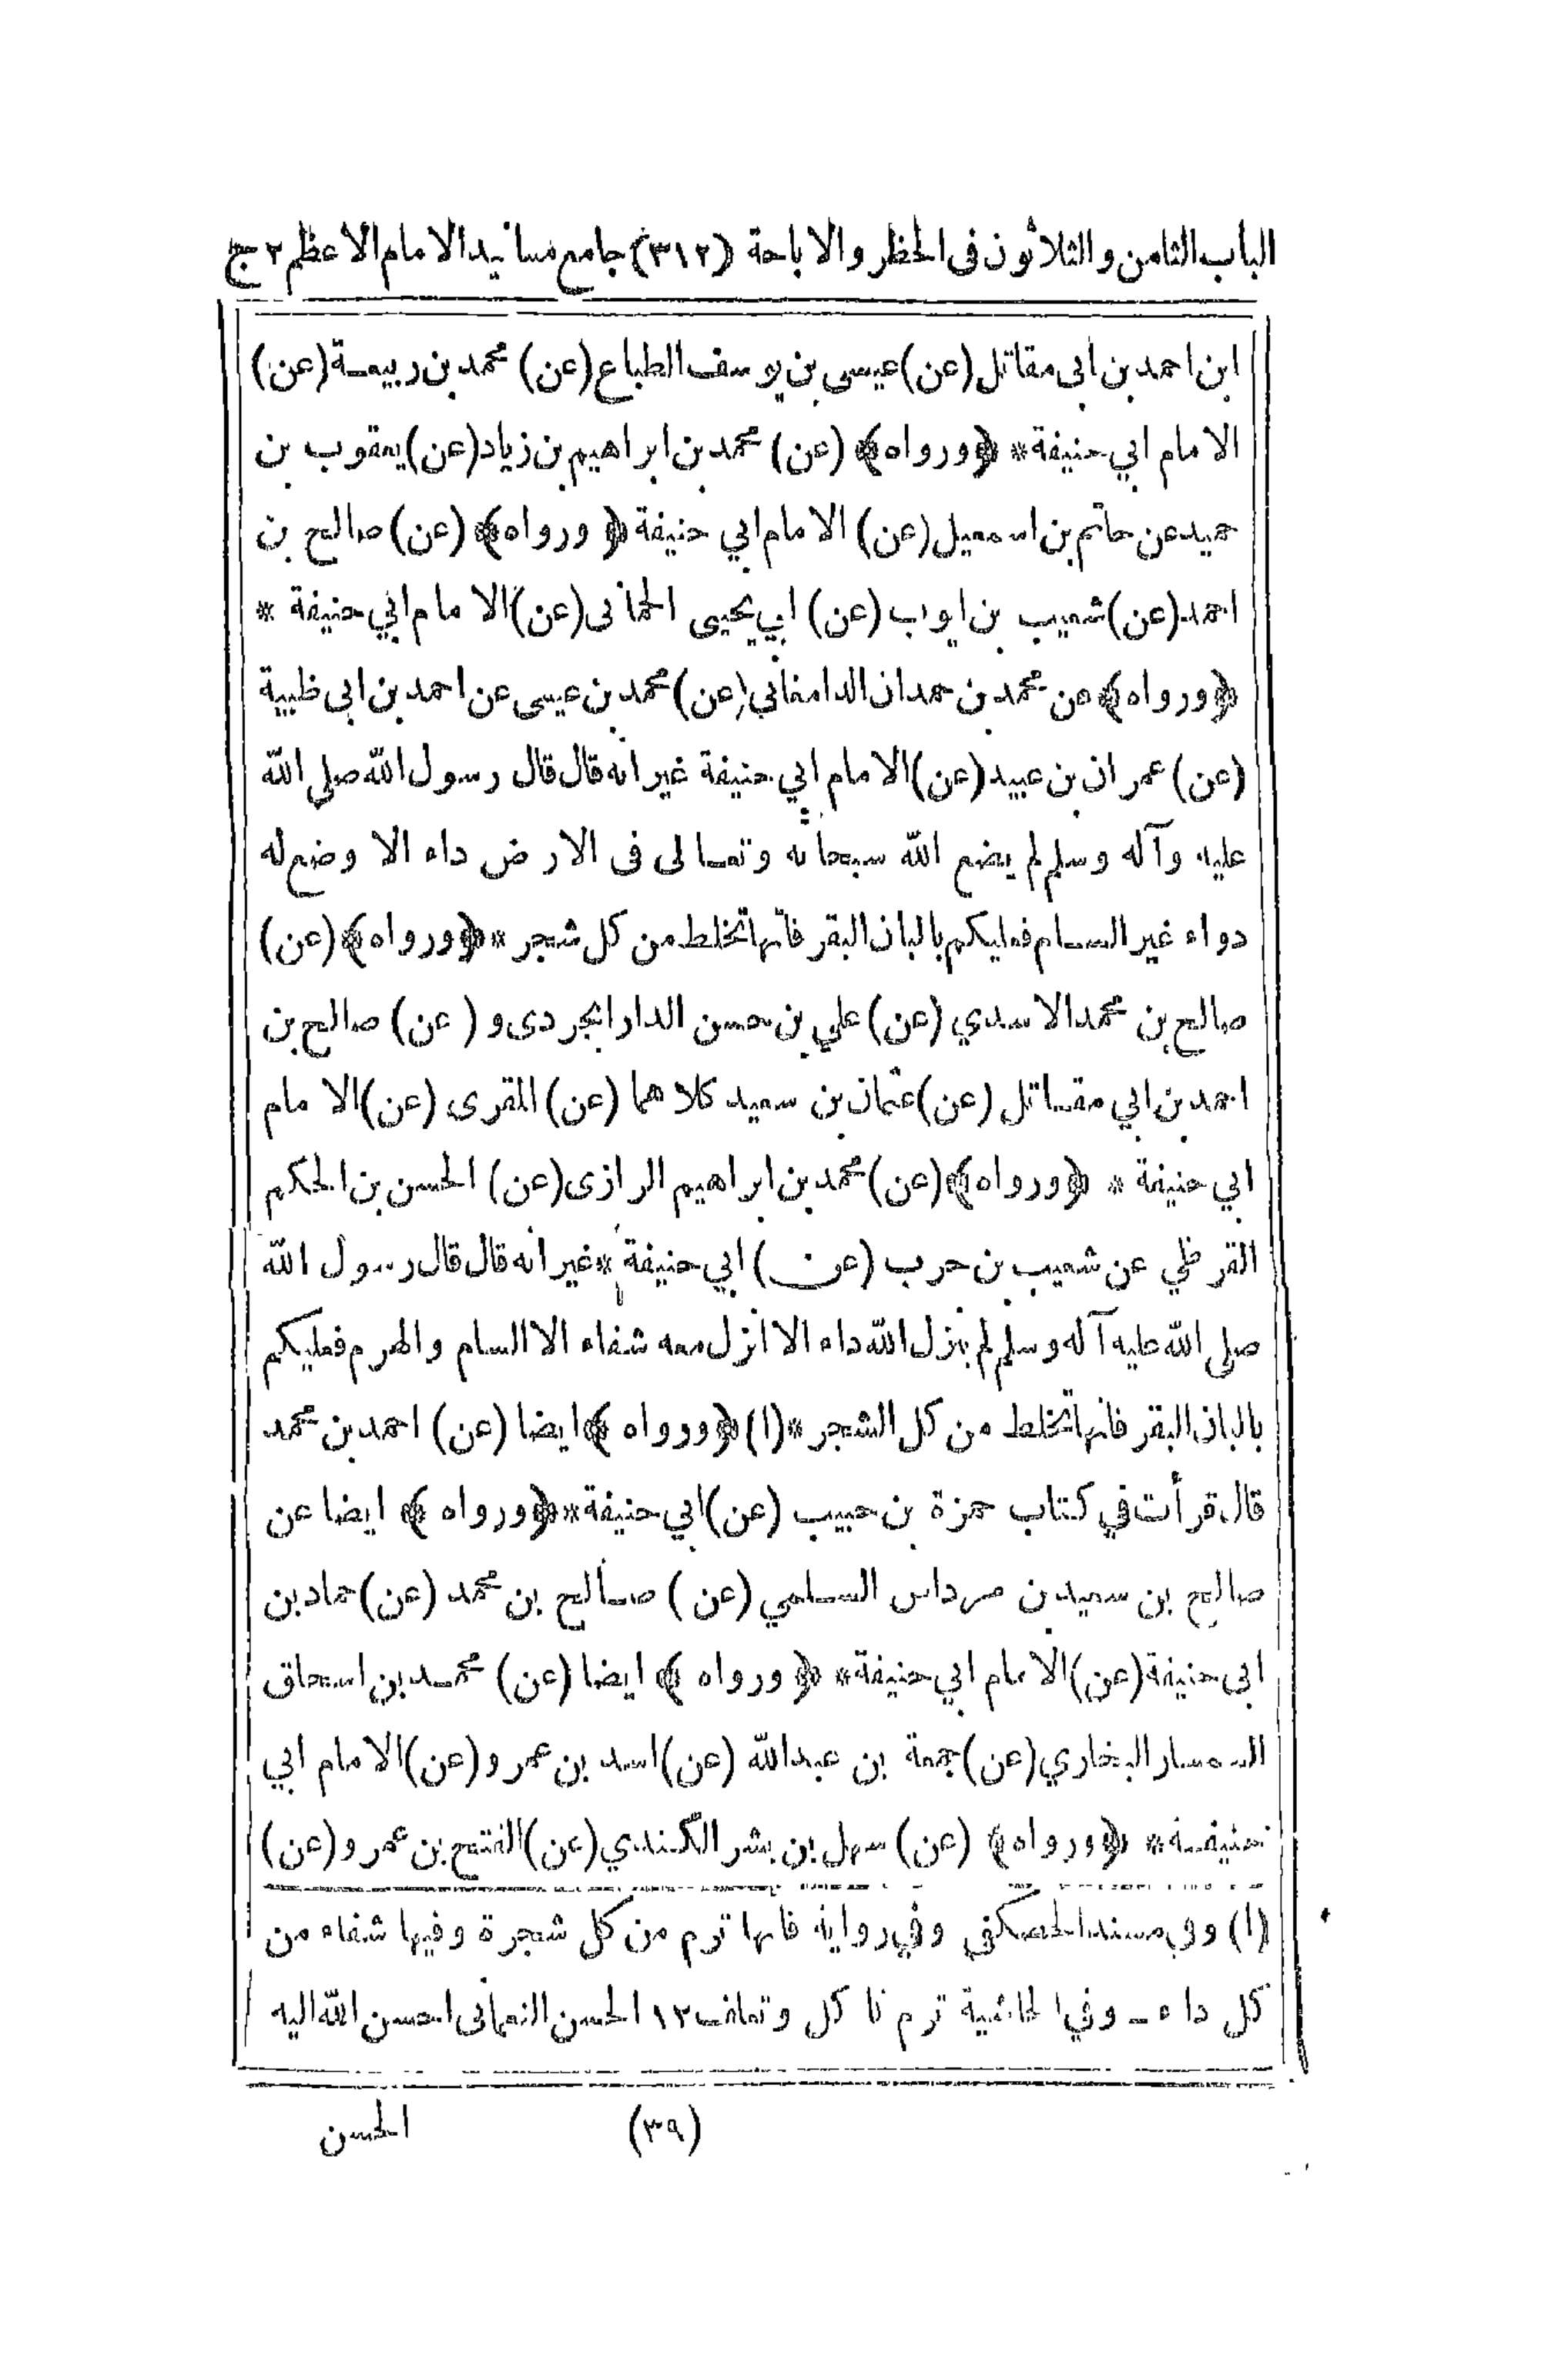 الباب الثامن والثلاثون فى الحظر والاباحة (٣١٢) جامع مسانيد الامام الاعظم ج٢
ابن احمد بن ابى مقاتل (عن) عيسى بن يوسف الطباع (عن) محمد بن ربيعة (عن)
الامام ابي حنيفة * ﴿ورواه﴾ (عن) محمد بن ابراهيم بن زياد (عن) يعقوب بن
حميد عن حاتم بن اسمعيل (عن) الامام ابي حنيفة ﴿ ورواه﴾ (عن) صالح بن
احمد (عن) شعيب بن ايوب (عن) ابي يحيى الحمانى (عن) الامام ابي حنيفة *
﴿ورواه﴾ عن محمد بن حمدان الدامغاني (عن) محمد بن عيسى عن احمد بن ابى ظبية
(عن) عمران بن عبيد (عن) الامام ابي حنيفة غير انه قال قال رسول الله صلى الله
عليه وآله وسلم لم يضع الله سبحانه وتعالى فى الارض داء الا وضع له
دواء غير السام فعليكم بالبان البقر فانها تخلط من كل شجر * ﴿ورواه﴾ (عن)
صالح بن محمد الاسدي (عن) علي بن حسن الدارابجردى و (عن) صالح بن
احمد بن ابي مقاتل (عن) عثمان بن سعيد كلاهما (عن) المقرى (عن) الامام
ابي حنيفة * ﴿ورواه﴾ (عن) محمد بن ابراهيم الرازى (عن) الحسن بن الحكم
القرظي عن شعيب بن حرب (عن) ابي حنيفة * غير انه قال قال رسول الله
صلى الله عليه آله وسلم لم ينزل الله داء الا انزل معه شفاء الا السام والهرم فعليكم
بالبان البقر فانها تخلط من كل الشجر * (١) ﴿ورواه ﴾ ايضا (عن) احمد بن محمد
قال قرأت في كتاب حمزة بن حبيب (عن) ابي حنيفة * ﴿ورواه ﴾ ايضا عن
صالح بن سعيد بن مرداس السلمي (عن) صالح بن محمد (عن) حماد بن
ابى حنيفة (عن) الامام ابي حنيفة * ﴿ ورواه ﴾ ايضا (عن) محمد بن اسحاق
السمسار البخاري (عن) جمعة بن عبدالله (عن) اسد بن عمرو (عن) الامام ابي
حنيفة * ﴿ورواه﴾ (عن) سهل بن بشر الكندي (عن) الفتح بن عمرو (عن)
(١) وفى مسند الحصكفى وفي رواية فانها ترم من كل شجرة وفيها شفاء من
كل داء - وفي الحاشية ترم تاكل وتعلف ١٢ الحسن النعمانى احسن الله اليه
(٣٩) الحسن